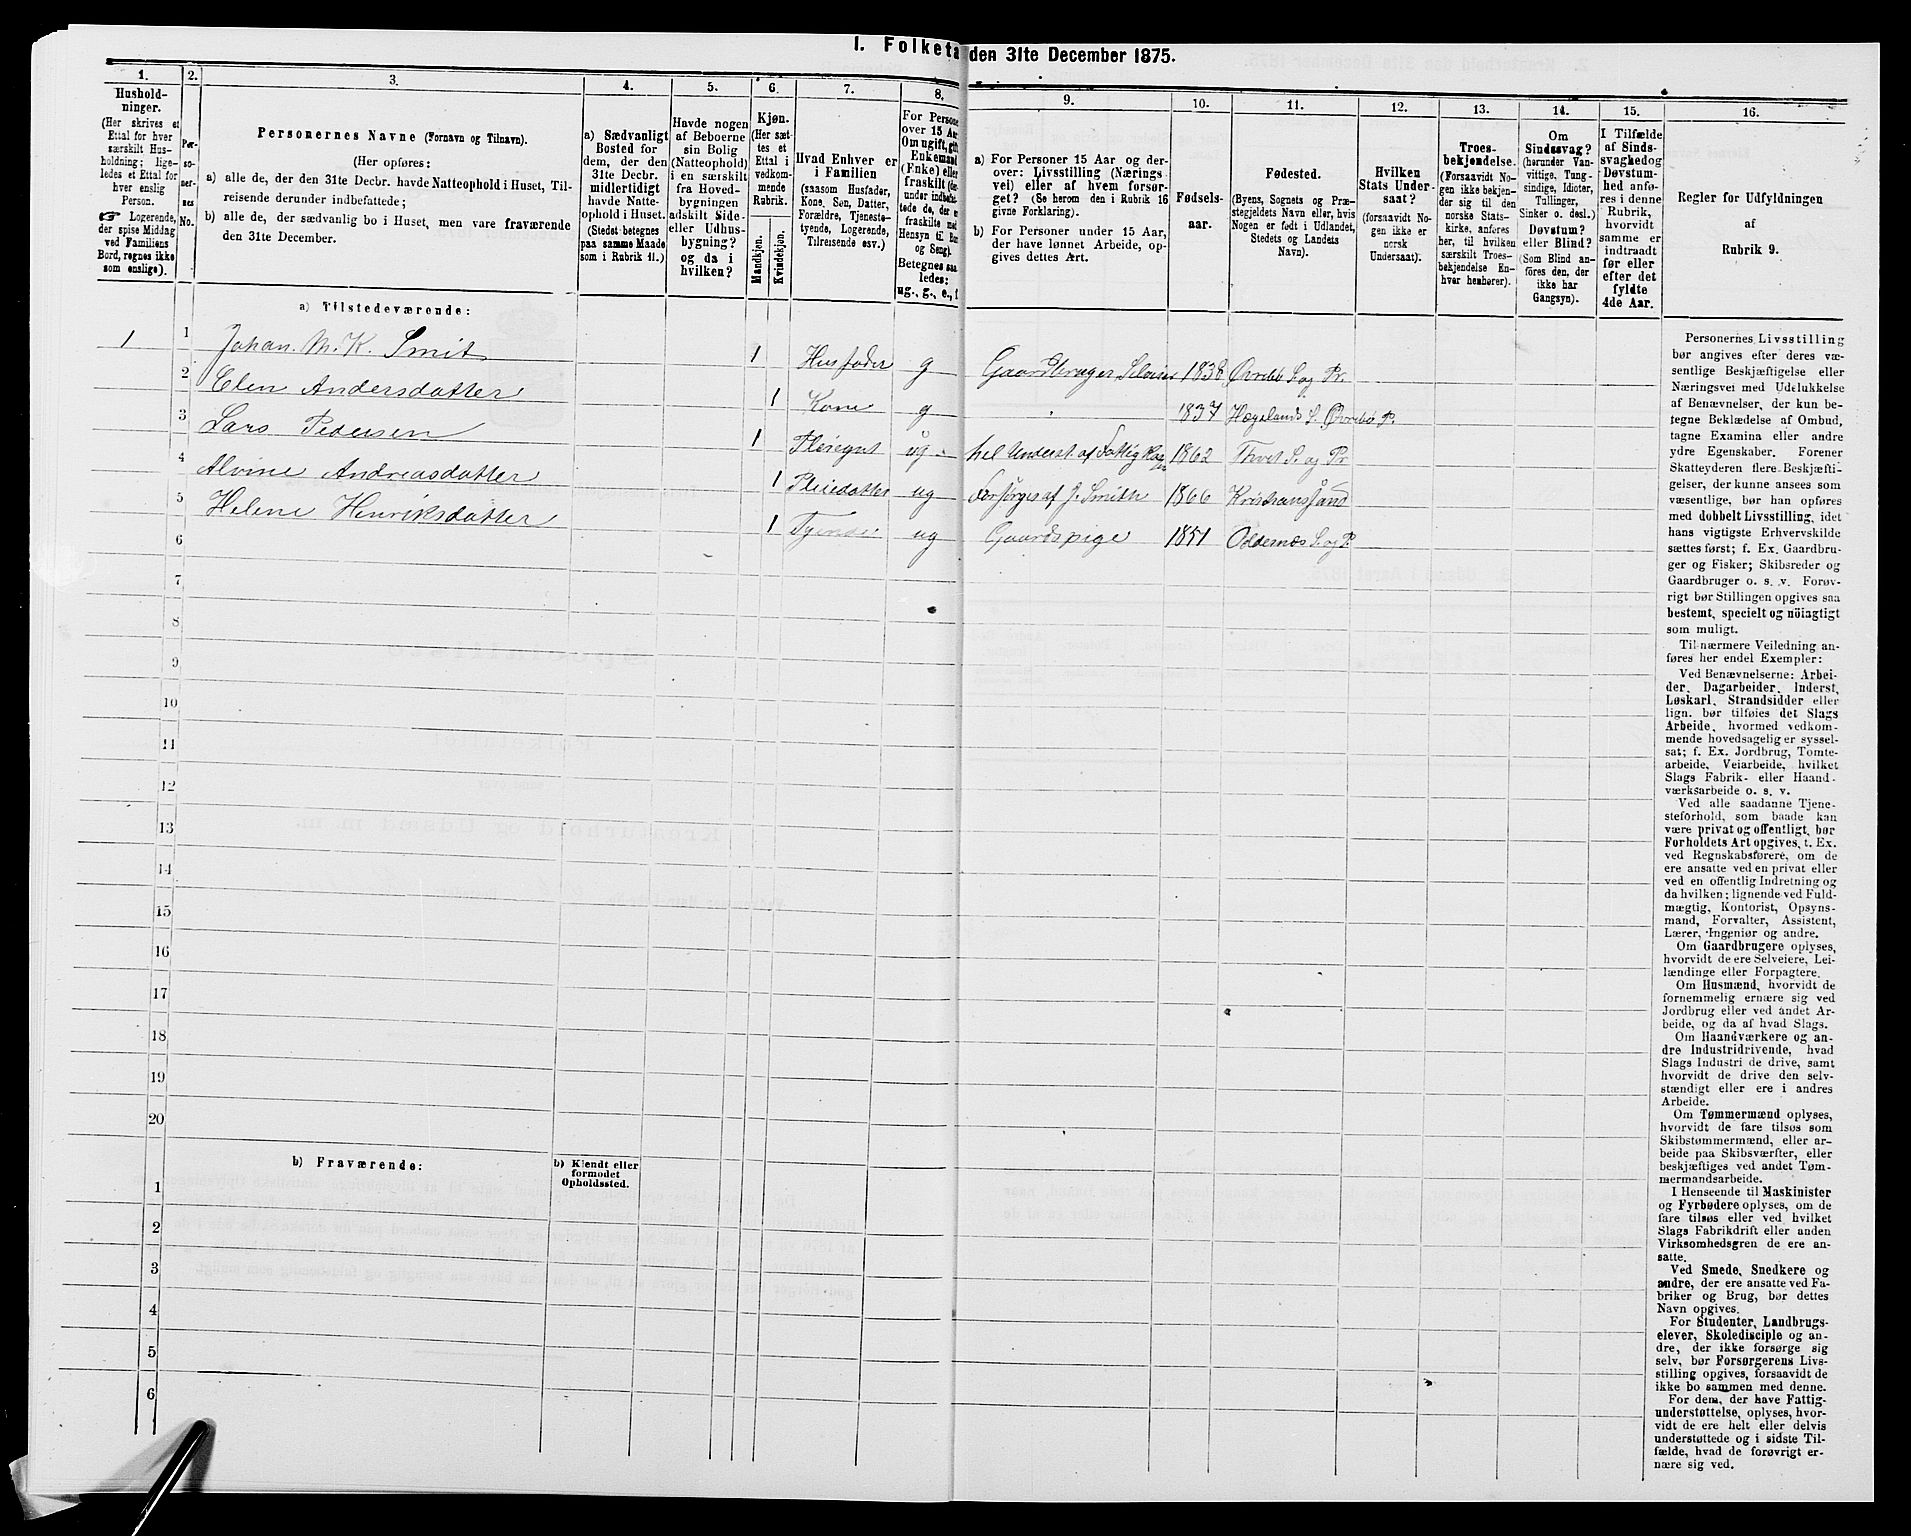 I. Folketa den 31te December 1875.
1.
Hushold-
ninger.
(Her skrives et
Ettal for hver
særskilt Hus-
holdning; lige-
ledes et Ettal for
hver enslig
Person.
☞ Logerende,
der spise Middag
ved Familiens
Bord, regnes ikke
som enslige).
2.
Per-
so-
ner-
nes
No.
3.
Personernes Navne (Fornavn og Tilnavn).
(Her opføres:
a) alle de, der den 31te Decbr. havde Natteophold i Huset, Til-
reisende derunder indbefattede;
b) alle de, der sædvanlig bo i Huset, men vare fraværende
den 31te December.
4.
a) Sædvanligt
Bosted for
dem, der den
31te Decbr.
midlertidigt
havde Natte-
ophold i Huset.
(Stedet betegnes
paa samme Maade
som i Rubrik 11.)
5.
Havde nogen
af Beboerne
sin Bolig
(Natteophold)
i en særskilt
fra Hoved-
bygningen
adskilt Side-
eller Udhus-
bygning?
og da i
hvilken?
6.
Kjøn.
(Her sæt-
tes et
Ettal i
vedkom-
mende
Rubrik.
Mandkjøn.
Kvindekjøn.
7.
Hvad Enhver er
i Familien
(saasom Husfader,
Kone, Søn, Datter,
Forældre, Tjeneste-
tyende, Logerende,
Tilreisende osv.)
8.
For Persone
over 15 Aar
Om ugift, gift
Enkemand
(Enke) eller
fraskilt (de
under indbefat-
tede de, der er
fraskilte med
Hensyn til Bo
og Seng).
Betegnes saa
ledes:
ug., g., e., f.
9.
a) For Personer 15 Aar og der-
over: Livsstilling (Nærings
vei) eller af hvem forsør-
get? (Se herom den i Rubrik 16
givne Forklaring).
b) For Personer under 15 Aar,
der have lønnet Arbeide, op-
gives dettes Art.
10.
Fødsels-
aar.
11.
Fødested.
(Byens, Sognets og Præ-
stegjeldets Navn eller, hvis
Nogen er født i Udlandet,
Stedets og Landets
Navn).
12.
Hvilken
Stats Under-
saat?
(forsaavidt No-
gen ikke er
norsk
Undersaat).
13.
Troes-
bekjendelse.
(Forsaavidt No-
gen ikke bekjen-
der sig til den
norske Stats-
kirke, anføres
her, til hvilken
særskilt Troes-
bekjendelse En-
hver henhører).
14.
Om
Sindssvag?
(herunder Van-
vittige, Tung-
sindige, Idioter,
Tullinger,
Sinker o. desl.)
Døvstum?
eller Blind?
(Som Blind an-
föres den, der
ikke har
Gangsyn).
15.
I Tilfælde
af Sinds-
svaghedog
Døvstum-
hed anfø-
res i denne
Rubrik,
hvorvidt
samme er
indtraadt
før eller
efter det
fyldte
4de Aar.
16.
Regler for Udfyldningen
af
Rubrik 9.
a) Tilstedeværende:
1 1 Johan. M. K. Smit 1 Husfader g Gaardbruger Selveier 1838 Øvrebö S. og Pr.
2 Elen Andersdatter 1 Kone g 1837 Hægelands S. Øvrebö P.
3 Lars Pedersen 1 Pleiegut ug hel Underst. af Fattigkassen 1862 Thvet S. og Pr
4 Alvine Andreasdatter 1 Pleiedatter ug Forsørges af J. Smith 1866 Kristianssand
5 Helene Henriksdatter 1 Tyende ug Gaardspige 1851 Oddernæs S. og P.
6
7
8
9
10
11
12
13
14
15
16
17
18
19
20
b) Fraværende:
b) Kjendt eller
formodet
Opholdssted.
1
2
3
4
5
6
Personernes Livsstilling
bør angives efter deres væ-
sentlige Beskjæftigelse eller
Næringsvei med Udelukkelse
af Benævnelser, der kun be-
tegne Beklædelse af Ombud,
tagne Examina eller andre
ydre Egenskaber. Forener
Skatteyderen flere Beskjæfti-
gelser, der kunne ansees som
væsentlige, bør han opføres
med dobbelt Livsstilling, idet
hans vigtigste Erhvervskilde
sættes først; f. Ex. Gaardbru-
ger og Fisker; Skibsreder og
Gaardbruger o. s. v. Forøv-
rigt bør Stillingen opgives saa
bestemt, specielt og nöiagtigt
som muligt.
Til nærmere Veiledning an-
føres her endel Exempler:
Ved Benævnelserne: Arbei-
der, Dagarbeider, Inderst,
Løskarl, Strandsidder eller
lign. bør tilføies det Slags
Arbeide, hvormed vedkom-
mende hovedsagelig er syssel-
sat; f. Ex. Jordbrug, Tomte-
arbeide, Veiarbeide, hvilket
Slags Fabrik- eller Haand-
værksarbeide o. s. v.
Ved alle saadanne Tjene-
steforhold, som baade kan
være privat og offentligt, bør
Forholdets Art opgives, t. Ex.
ved Regnskabsførere, om de
ere ansatte ved en privat eller
ved en offentlig Indretning og
da hvilken; lignende ved Fuld-
mægtig, Kontorist, Opsyns-
mand, Forvalter, Assistent,
Lærer, Ingeniør og andre.
Om Gaardbrugere oplyses,
hvorvidt de ere Selveiere, Lei-
lændinge eller Forpagtere.
Om Husmænd, hvorvidt de
fornemmelig ernære sig ved
Jordbrug eller ved andet Ar-
beide, og da af hvad Slags.
Om Haandværkere og an-
dre Industridrivende, hvad
Slags Industri de drive, samt
hvorvidt de drive den selv-
stændigt eller ere i andres
Arbeide.
Om Tømmermænd oplyses,
hvorvidt de fare tilsøs som
Skibstømmermænd, eller ar-
beide paa Skibsværfter, eller
beskjæftiges ved andet Tøm-
mermandsarbeide.
I Henseende til Maskinister
og Fyrbødere oplyses, om de
fare tilsøs eller ved hvilket
Slags Fabrikdrift eller anden
Virksomhedsgren de ere an-
satte.
Ved Smede, Snedkere og
andre, der ere ansatte ved Fa-
briker og Brug, bør dettes
Navn opgives.
For Studenter, Landbrugs-
elever, Skoledisciple og an-
dre, der ikke forsørge sig
selv, bør Forsørgerens Livs-
stilling opgives, forsaavidt de
ikke bo sammen med denne.
For dem, der have Fattig-
understøttelse, oplyses, hvor-
vidt de ere helt eller delvis
understøttede og i sidste Til-
fælde, hvad de forøvrigt er-
nære sig ved.